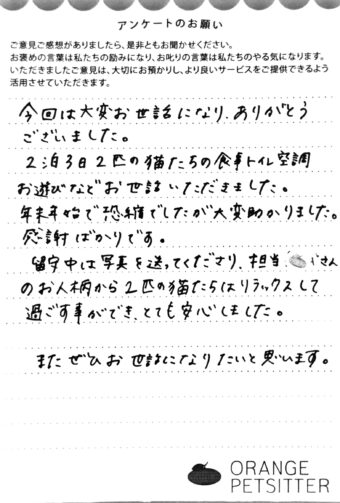 アンケートのお願い
ご意見ご感想がありましたら、是非ともお聞かせください。
お褒めの言葉は私たちの励みになり、お叱りの言葉は私たちのやる気になります。
いただきましたご意見は、大切にお預かりし、より良いサービスをご提供できるよう
活用させていただきます。
今回は大変お世話になり、ありがとう
ございました。
2泊3日2匹の猫たちの食事トイレ空調
お遊びなどお世話いただきました。
年末年始で恐縮でしたが大変助かりました。
感謝ばかりです。
留守中は写真を送ってくださり、担当 さん
のお人柄から2匹の猫たちはリラックスして
過ごす事ができ、とても安心しました。
またぜひお世話になりたいと思います。
ORANGE
PETSITTER